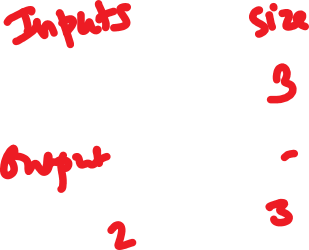 Inputs size
3
Output -
3
2